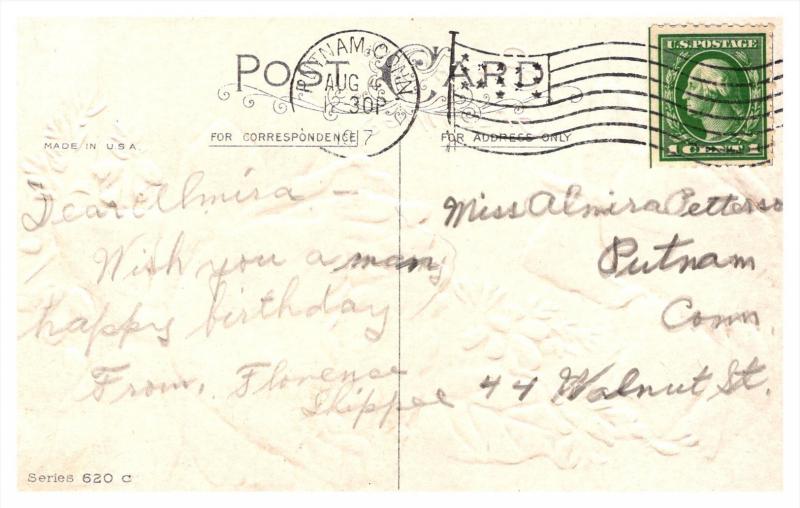 POST CARD
PUTNAM, CONN.
AUG 6
12 30P
FOR CORRESPONDENCE
FOR ADDRESS ONLY
MADE IN U.S.A.
U.S. POSTAGE
1 CENT 1
Dear Almira –
Wish you a many
happy birthday
From, Florence
Shippee
Miss Almira Petterso
Putnam
Conn.
44 Walnut St.
Series 620 C